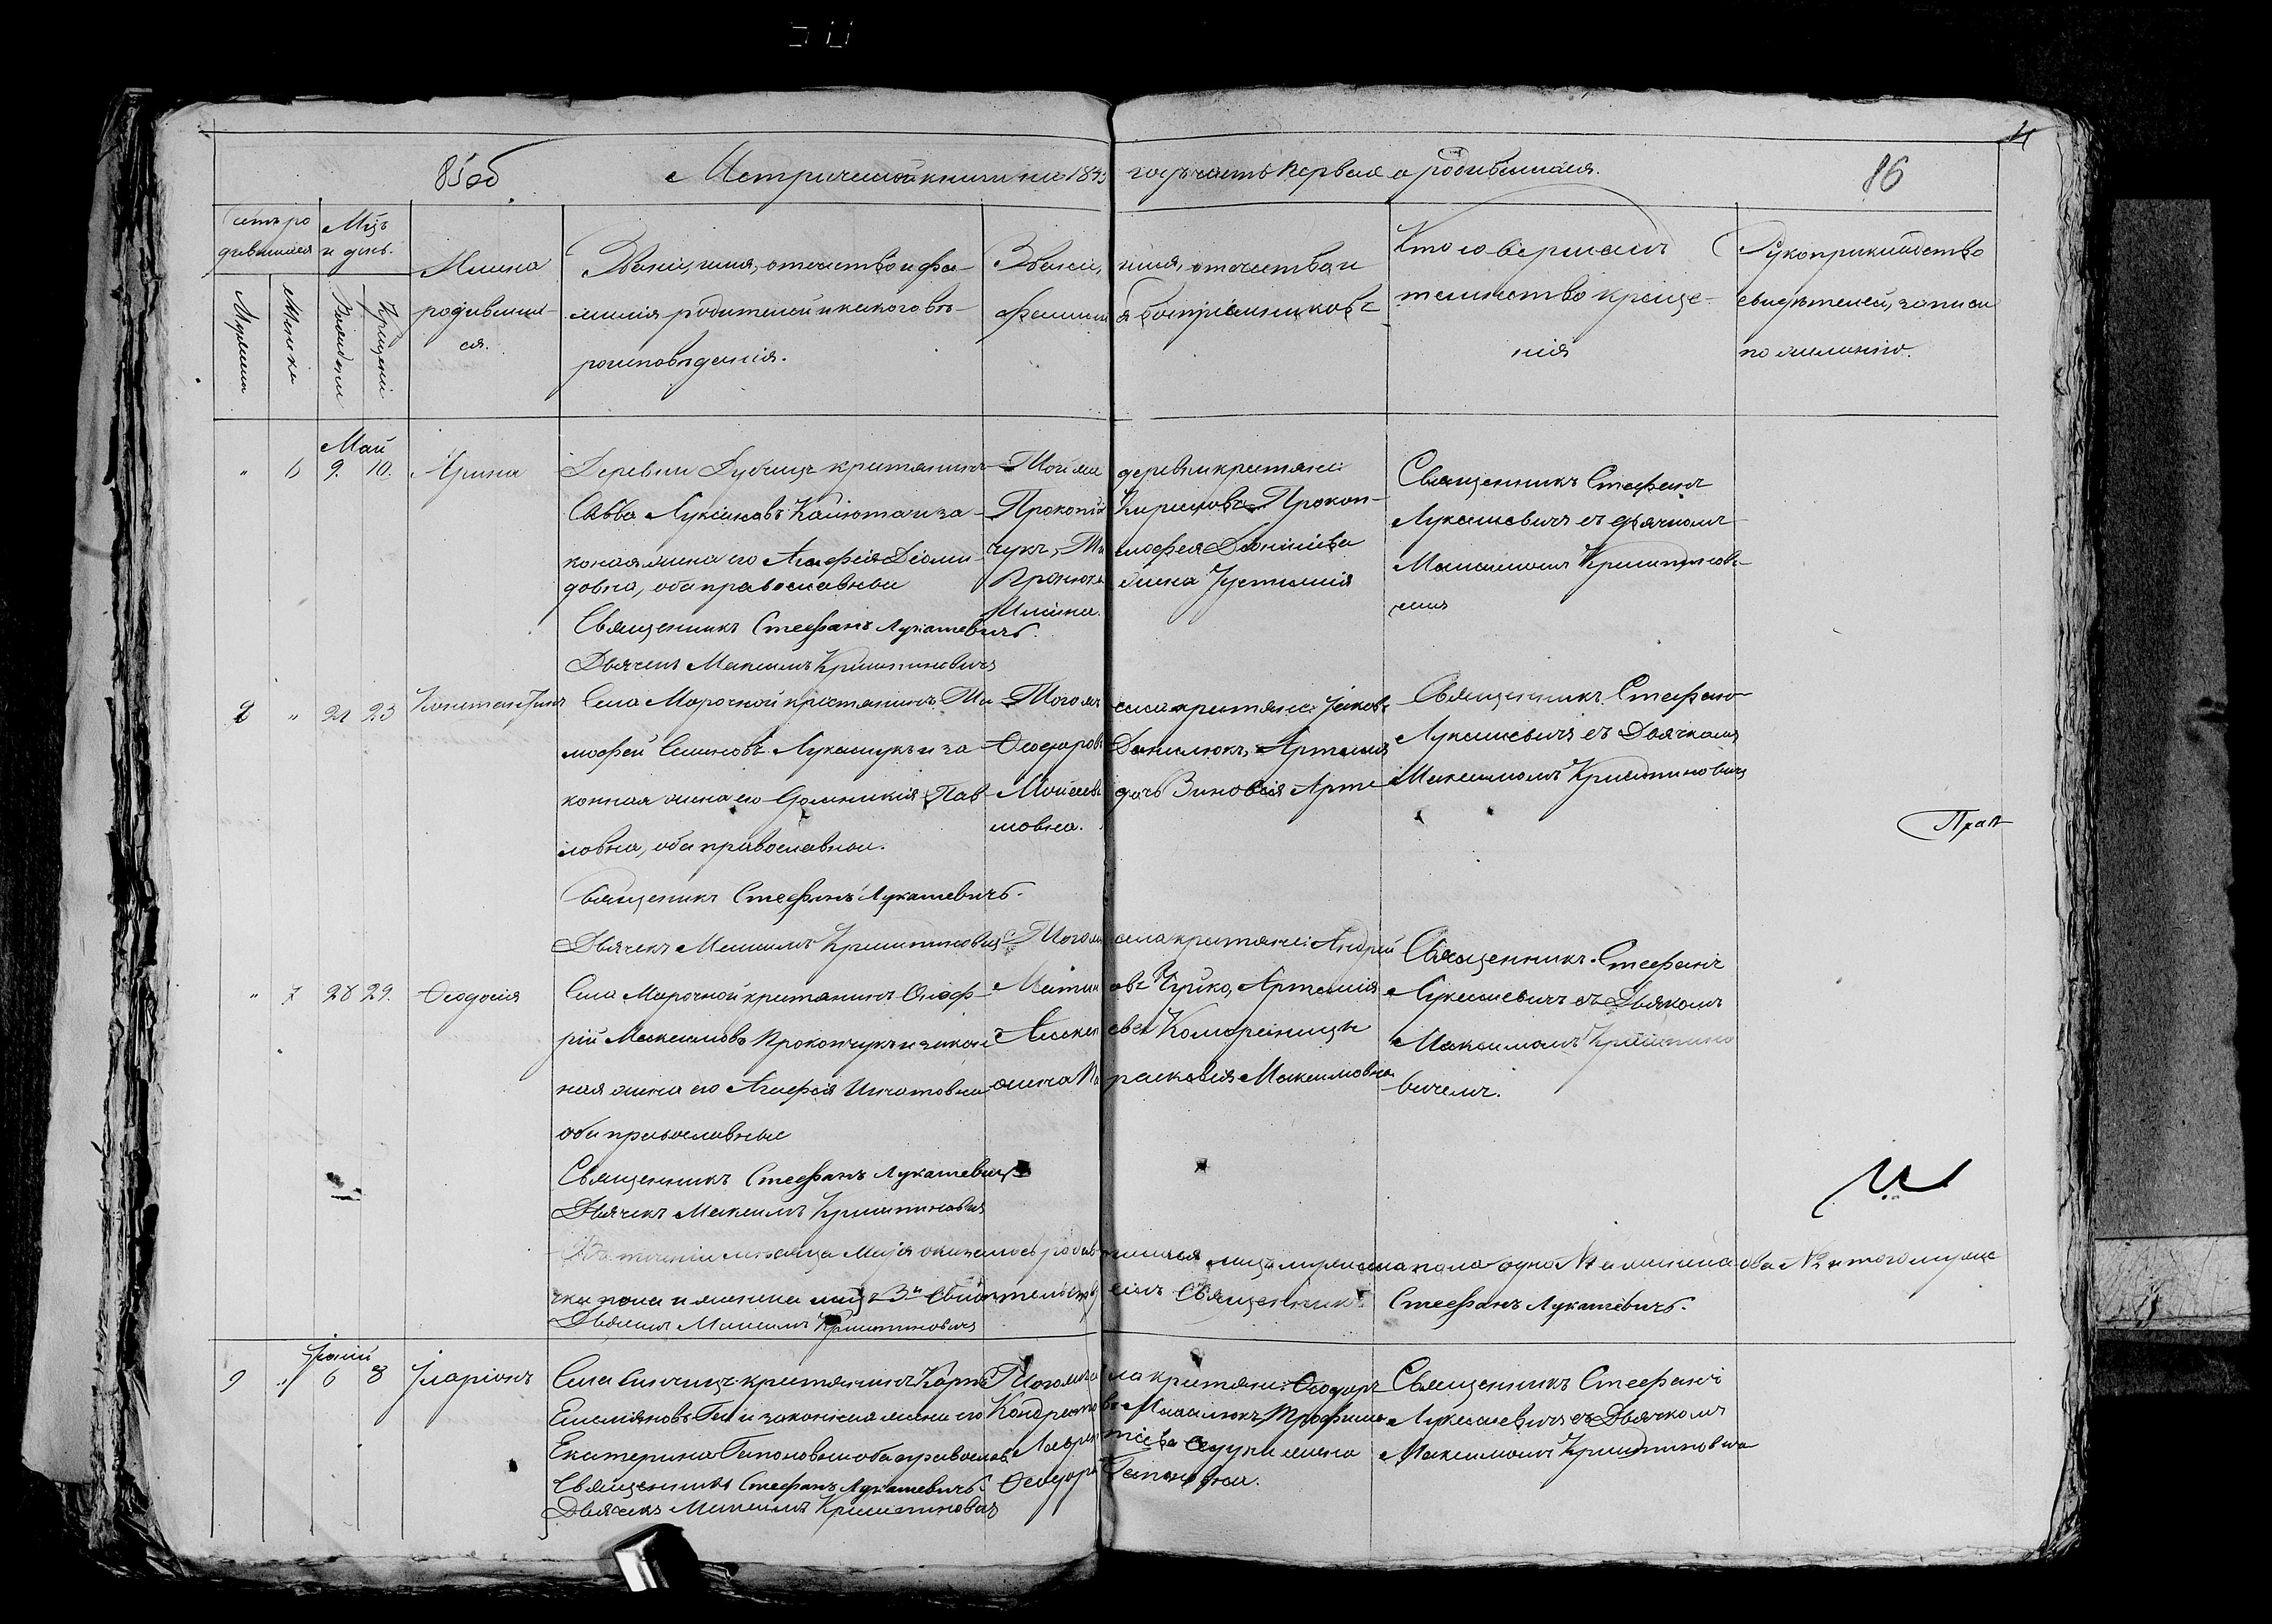 85об
Метрической книги на 183
годъ часть первая о родившихся.
86
Счетъ ро
дившихся
Мцъ
и день.
Мужеска
Женска
Рожденія
Крещенія
Имена
родивших-
ся.
Званіе, имя, отечество и фа-
милія родителей и какого вѣ-
роисповѣданія.
Званіе, имя, отечество и
фамилія воспріемниковъ
Кто совершалъ
таинство креще-
нія
Рукоприкладство
свидѣтелей, записи
по желанію.
Май
" 6 9. 10. Арина
Деревни Дубчицъ крестянинъ
Савва Лукіановъ Каюта и за-
конная жена его Агафія Діоми-
довна, оба православные
Священникъ Стефанъ Лукашевичъ.
Дьячекъ Максимъ Криштиновичъ
Той же деревни крестяне:
Прокопій Кириловъ Прокоп-
чукъ, Тимофея Діонисіева
жена Іустинія
Ильина.
Священникъ Стефанъ
Лукашевичъ съ дьячкомъ
Максимомъ Криштинови-
чемъ
" 21 23 Константинъ
Села Морочной крестянинъ Ти-
мофей Семеновъ Лукашукъ и за-
конная жена его Домникія Пав-
ловна, оба православные.
Священикъ Стефанъ Лукашевичъ.
Дьячекъ Максимъ Криштиновичъ
Того жъ села крестяне: Іаковъ
Феодоровъ Данилюкъ, Артемія
Мойсеева дочь Зиновія Арте-
мовна.
Священникъ Стефанъ
Лукашевичъ съ Дьячкомъ
Максимомъ Криштиновичемъ
" 7 28 29. Феодосія
Села Морочной крестянинъ Онуф-
рій Максимовъ Прокопчукъ и закон-
ная жена его Агафія Игнатовна
оба православные
Священникъ Стефанъ Лукашевичъ
Дьячекъ Максимъ Криштиновичъ
Того жъ села крестяне: Андрей
Чуйко, Артемія
жена Параскевія Максимовна
Священникъ Стефанъ
Лукашевичъ съ Дьякомъ
Максимомъ Криштино
вичемъ.
Въ теченіи мѣсяца Маія оказалось родившихся лицъ мужеска пола одно №1 и женска два №2 итого муже
ска пола и женска лицъ 3и Свидѣтельствуемъ Священникъ Стефанъ Лукашевичъ.
Дьячекъ Максимъ Криштиновичъ
Іюній
9 " 6 8 Іларіонъ
Села крестянинъ Карпъ
Емеліяновъ и законная жена его
Екатерина оба православ.
Священникъ Стефанъ Лукашевичъ.
Дьячекъ Максимъ Криштиновичъ
Того жъ села крестяне: Феодоръ
Кондратовъ Михалюкъ, Трофима
Лаврентіева жена
Феодора
Священникъ Стефанъ
Лукашевичъ съ Дьячкомъ
Максимомъ Криштинович